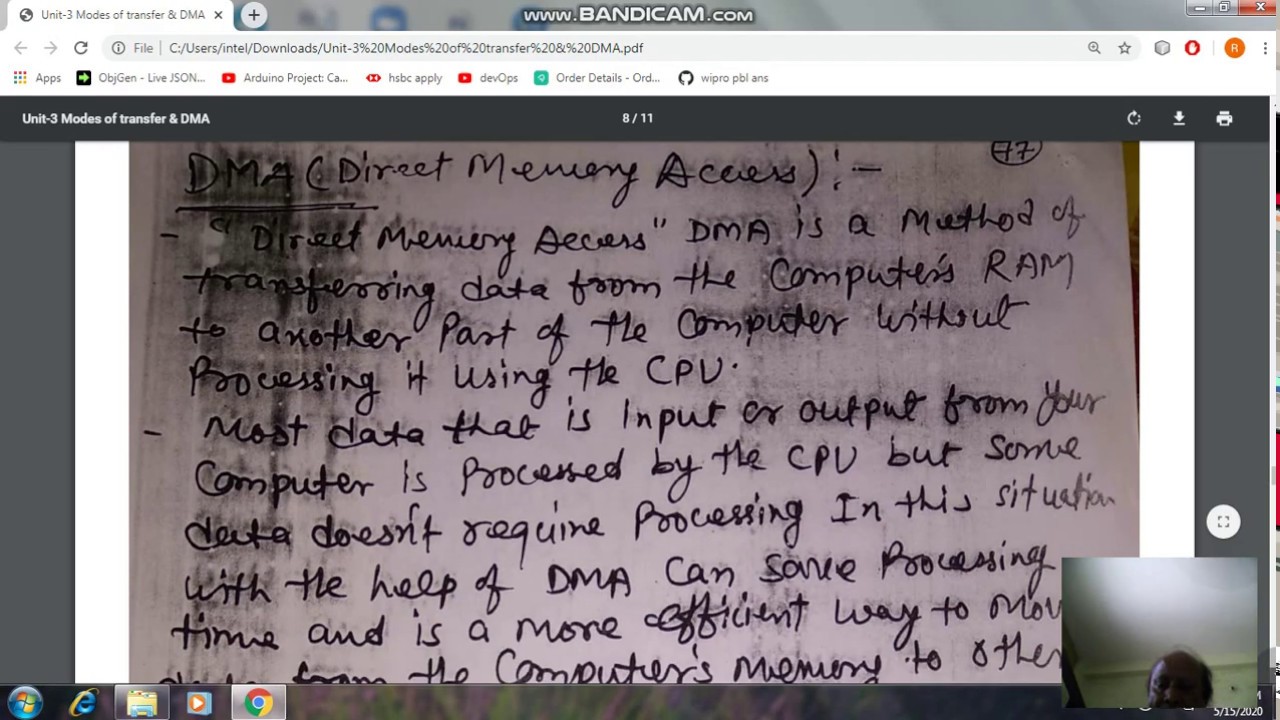 Unit-3 Modes of transfer & DMA
www.BANDICAM.com
File C:/Users/intel/Downloads/Unit-3%20Modes%20of%20transfer%20&%20DMA.pdf
R
Apps ObjGen - Live JSON... Arduino Project: Ca... hsbc apply devOps Order Details - Ord... wipro pbl ans
Unit-3 Modes of transfer & DMA 8 / 11
77
DMA (Direct Memory Access) :-
- "Direct Memory Access" DMA is a Method of
transferring data from the Computer's RAM
to another Part of the Computer without
Processing it using the CPU.
- Most data that is input or output from your
Computer is Processed by the CPU but some
data doesn't require Processing In this situation
with the help of DMA Can save Processing
time and is a more efficient way to mov
data from the Computer's memory to other
5/15/2020